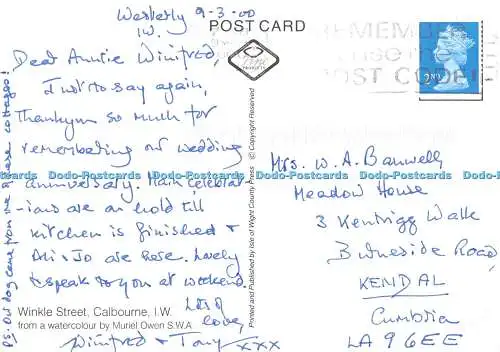 Westerly 9-3-00
I.W.
Dear Auntie Winifred,
I just to say again,
Thankyou so much for
remembering our wedding
anniversary. Main celebrat
-ions are on hold till
kitchen is finished &
Ali & Jo are here. Lovely
to speak to you at weekend.
Lots of
love,
Winifred & Tony xxx
P.S. Our dog came from one of these cottages!
Winkle Street, Calbourne, I.W.
from a watercolour by Muriel Owen S.W.A.
POST CARD
Printed and Published by Isle of Wight County Press © Copyright Reserved
REMEMBER
TO USE THE
POST CODE
2ND
Mrs. W. A. Banwell
Meadow House
3 Kentrigg Walk
Burneside Road
KENDAL
Cumbria
LA9 6EE
Dodo-Postcards Dodo-Postcards Dodo-Postcards Dodo-Postcards Dodo-Postcards Dodo-Postcards